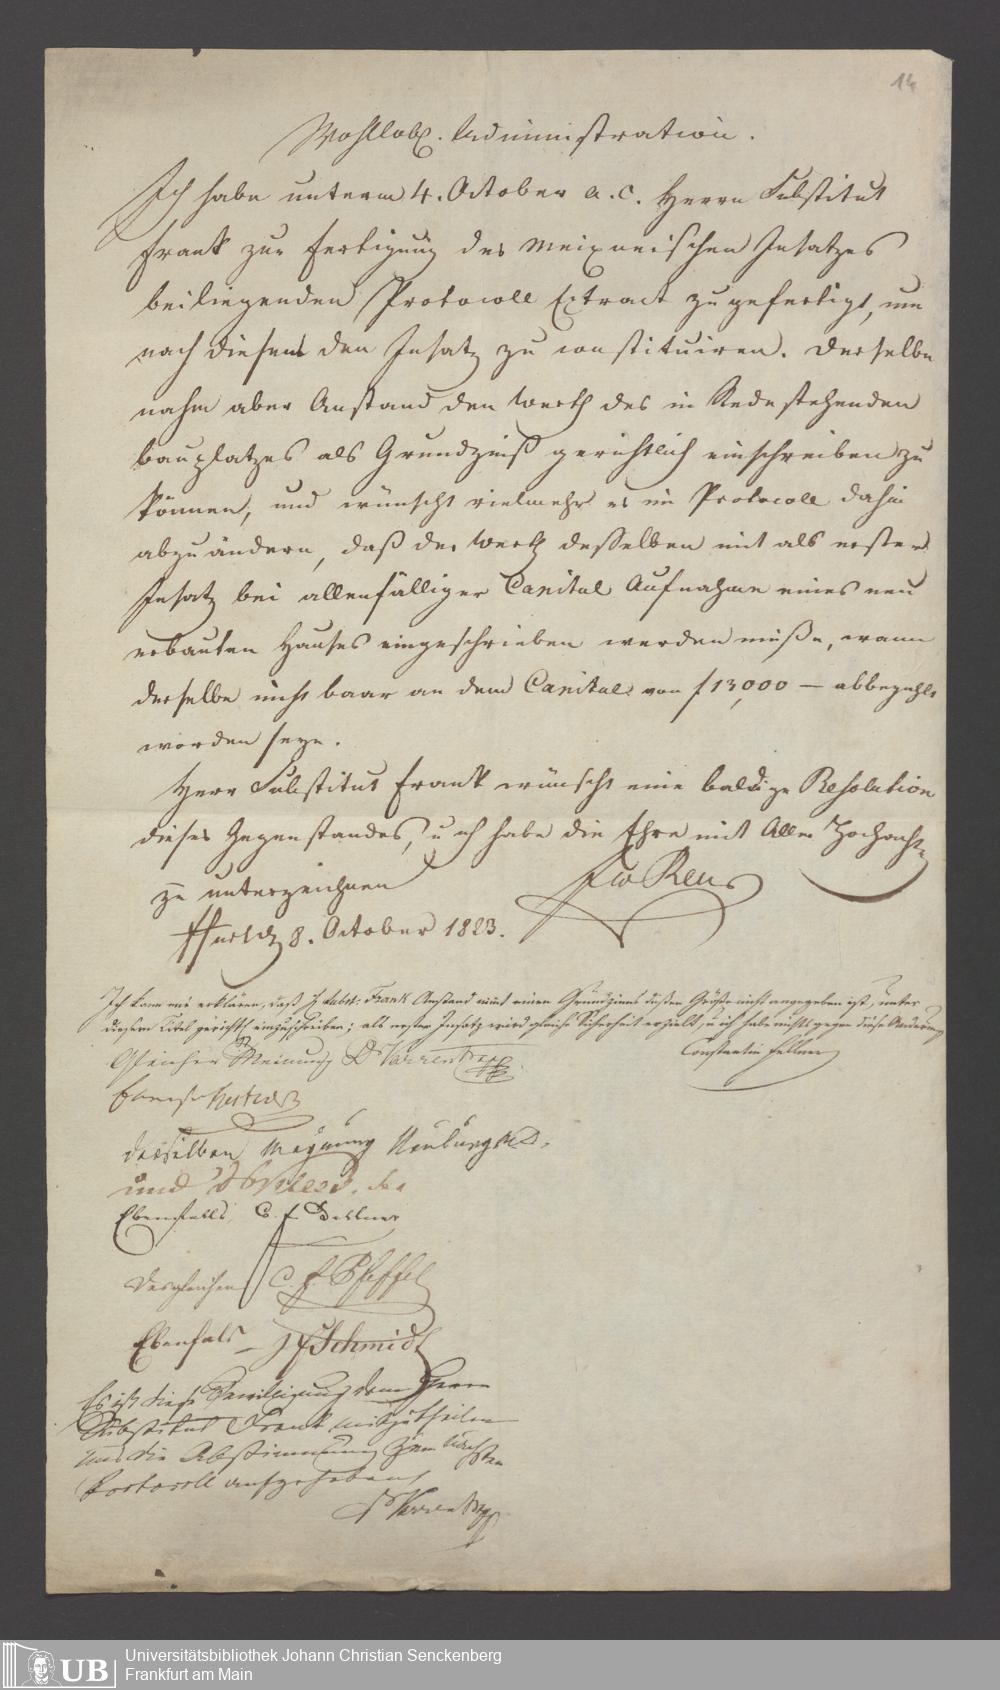 14
Wohllöbl. Administration.
Ich habe unterm 4. October a. c. Herrn Substitut
Frank zur Fertigung des Meixnerischen Insatzes
beiliegenden Protocoll Extract zugefertigt, um
nach diesem den Insatz zu constituiren. Derselbe
nahm aber Anstand den Werth des in Rede stehenden
Bauplatzes als Grundzinß gerichtlich einschreiben zu
können, und wünscht vielmehr es im Protocoll dahin
abzuändern, daß der Werth desselben mit als erster
Insatz bei allenfälliger Capital Aufnahme eines neu
erbauten Hauses eingeschrieben werden müße, wann
derselbe nicht baar an dem Capital von f 13,000 — abbezahlt
worden seye.
Herr Substitut Frank wünscht eine baldige Resolution
dieses Gegenstandes, u ich habe die Ehre mit Aller Hochacht
zu unterzeichnen
Ffurt d 8. October 1823.
Ich kann mir erklären, daß H. Subst: Frank Anstand nimt einen Grundzinns dessen Größe nicht angegeben ist, unter
diesem Titel gerichtl einzuschreiben; als erster Insatz wird gleiche Sicherheit erzielt, u ich habe nichts gegen diese Aenderung
Constantin Fellner
Gleicher Meinung Dr Varrentrapp
derselben Meynung Neuburg MD.
und
Ebenfalls. C. F. Kellner
Desgleichen C. F. Pfeffel
Ebenfals — J F Schmidt
Es ist diese Bewilligung dem Herrn
Substitut Frank mitzutheilen
und die Abstimmung zum nächsten
Protocoll aufzuheben
Dr Varrentrapp
UB
Universitätsbibliothek Johann Christian Senckenberg
Frankfurt am Main